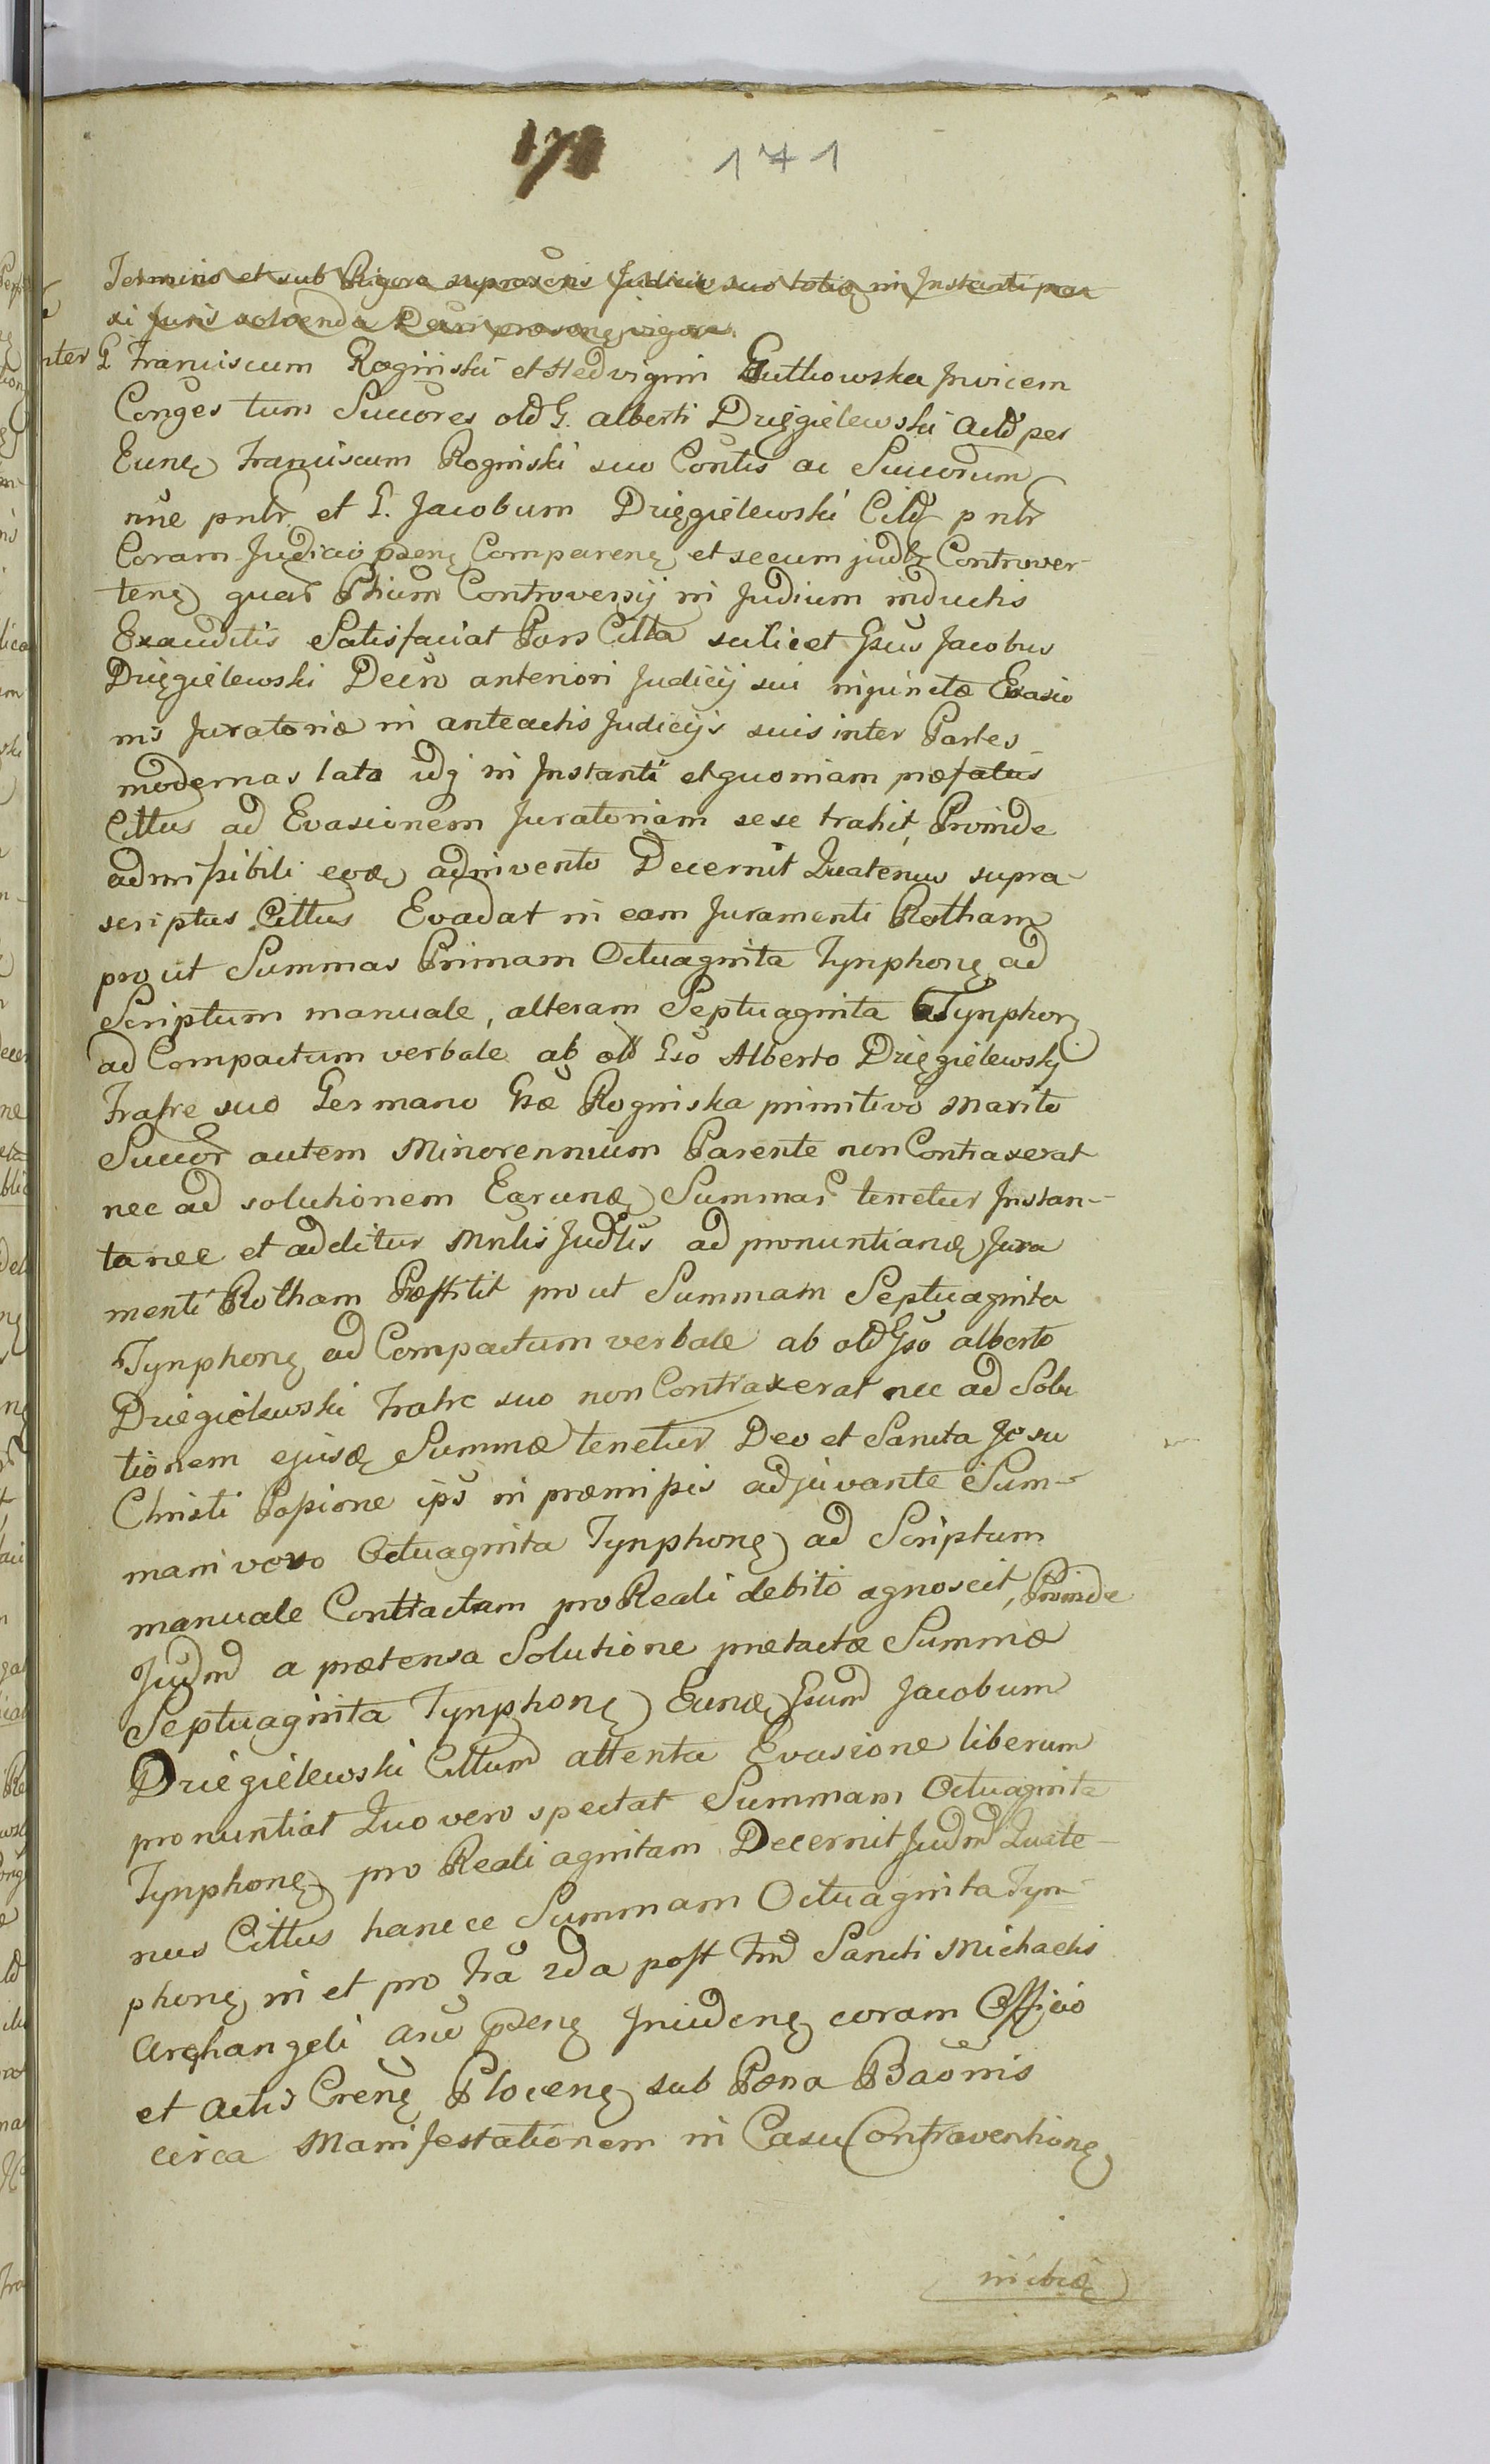 171
Termino et sub Rigore suprascris Judicio suo totiq in Instanti par
si Juris solvenda Decri præsenę vigore.
nter G Franciscum Roginski et Hedvigim Gutkowska Invicem
Conges tum Succores old G. alberti Dzięgielewski Actd per
Eunę Franciscum Roginski suo Contis ac Succorum
nne pntr et G. Jacobum Dzięgielewski Citd pntr
Coram Judicio psenę Comparenę et secum judtr Controver-
tenę quar Phium Controversij in Judium inductis
Exauditis Satisfaciat Pars Citta scilicet Gsus Jacobus
Dzięgielewski Decro anteriori Judicij sui injunctæ Evasio
nis Juratoriæ in anteactis Judicijs suis inter Partes
modernas lata idq in Instanti et quoniam præfatus
Cittus ad Evasionem Juratoriam sese trahit, Proinde
admissibili eoæ adinvento Decernit Quatenus supra-
scriptus Cittus Evadat in eam Juramenti Rotham
pro ut Summas Primam Octuaginta Tynphonę ad
Scriptum manuale, alteram Septuaginta Tynphonę
ad Compactum verbale ab old Gso Alberto Dzięgielewskj
Fratre suo Germano Gsæ Roginska primitivo Marito
Succor autem Minorennium Parente non Contraxerat
nec ad solutionem Earunę Summar tenetur Instan-
tanee et additur Mnlis Judlis ad pronuntianę Jura
menti Rotham Præstitit pro ut Summam Septuaginta
Tynphonę ad Compactum verbale ab old Gso alberto
Dziegielewski Fratre suo non Contraxerat nec ad Solu
tionem ejusę Summæ tenetur Deo et Sancta Jesu
Christi Passione ips in præmissis adjuvante Sum-
mam vero Octuaginta Tynphonę ad Scriptum
manuale Contractam pro Reali debito agnoscit, Proinde
Judm a prætensa Solutione prætactæ Summæ
Septuaginta Tynphonę Eunę Gsum Jacobum
Dziegielewski Cittum attenta Evasione liberum
pronuntiat Quo vero spectat Summam Octuaginta
Tynphonę pro Reali agnitam Decernit Judm Quate-
nus Cittus hancce Summam Octuaginta Tyn-
phonę in et pro Fra 2da post Fm Sancti Michaelis
Archangeli anō psenę Incidenę coram Officio
et Actis Crenę Plocenę sub Pæna Baōnis
circa Manifestationem in Casu Contraventionę
inibię